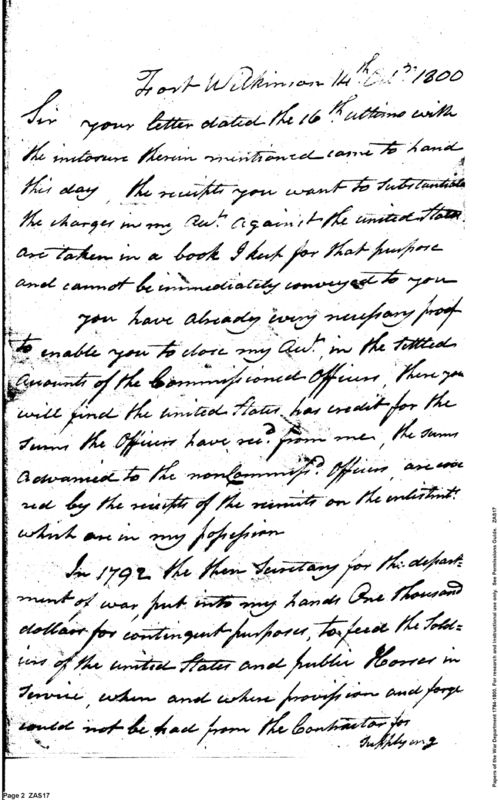 Fort Wilkinson 14th Octr 1800
Sir your letter dated the 16th ultimo with
the inclosure therein mentioned came to hand
this day, the receipts you want to substantiate
the charges in my Acct. against the united States
are taken in a book I kept for that purpose
and cannot be immediately conveyed to you
you have already every necessary proof
to enable you to close my Acct. in the settled
accounts of the Commissioned Officers, there you
will find the united States has credit for the
sums the Officers have recd. from me, the sums
advanced to the nonCommissd. Officers are cove
red by the receipts of the recruits on the inlistmts.
which are in my possession
In 1792 the then Secretary for the depart=
ment of war, put into my hands One thousand
dollars for contingent purposes, to feed the Sold=
iers of the united States and public Horses in
service, when and where provission and forge
could not be had from the Contractor for
supplying
Page 2 ZAS17
Papers of the War Department 1784-1800. For research and instructional use only. See Permissions Guide. ZAS17